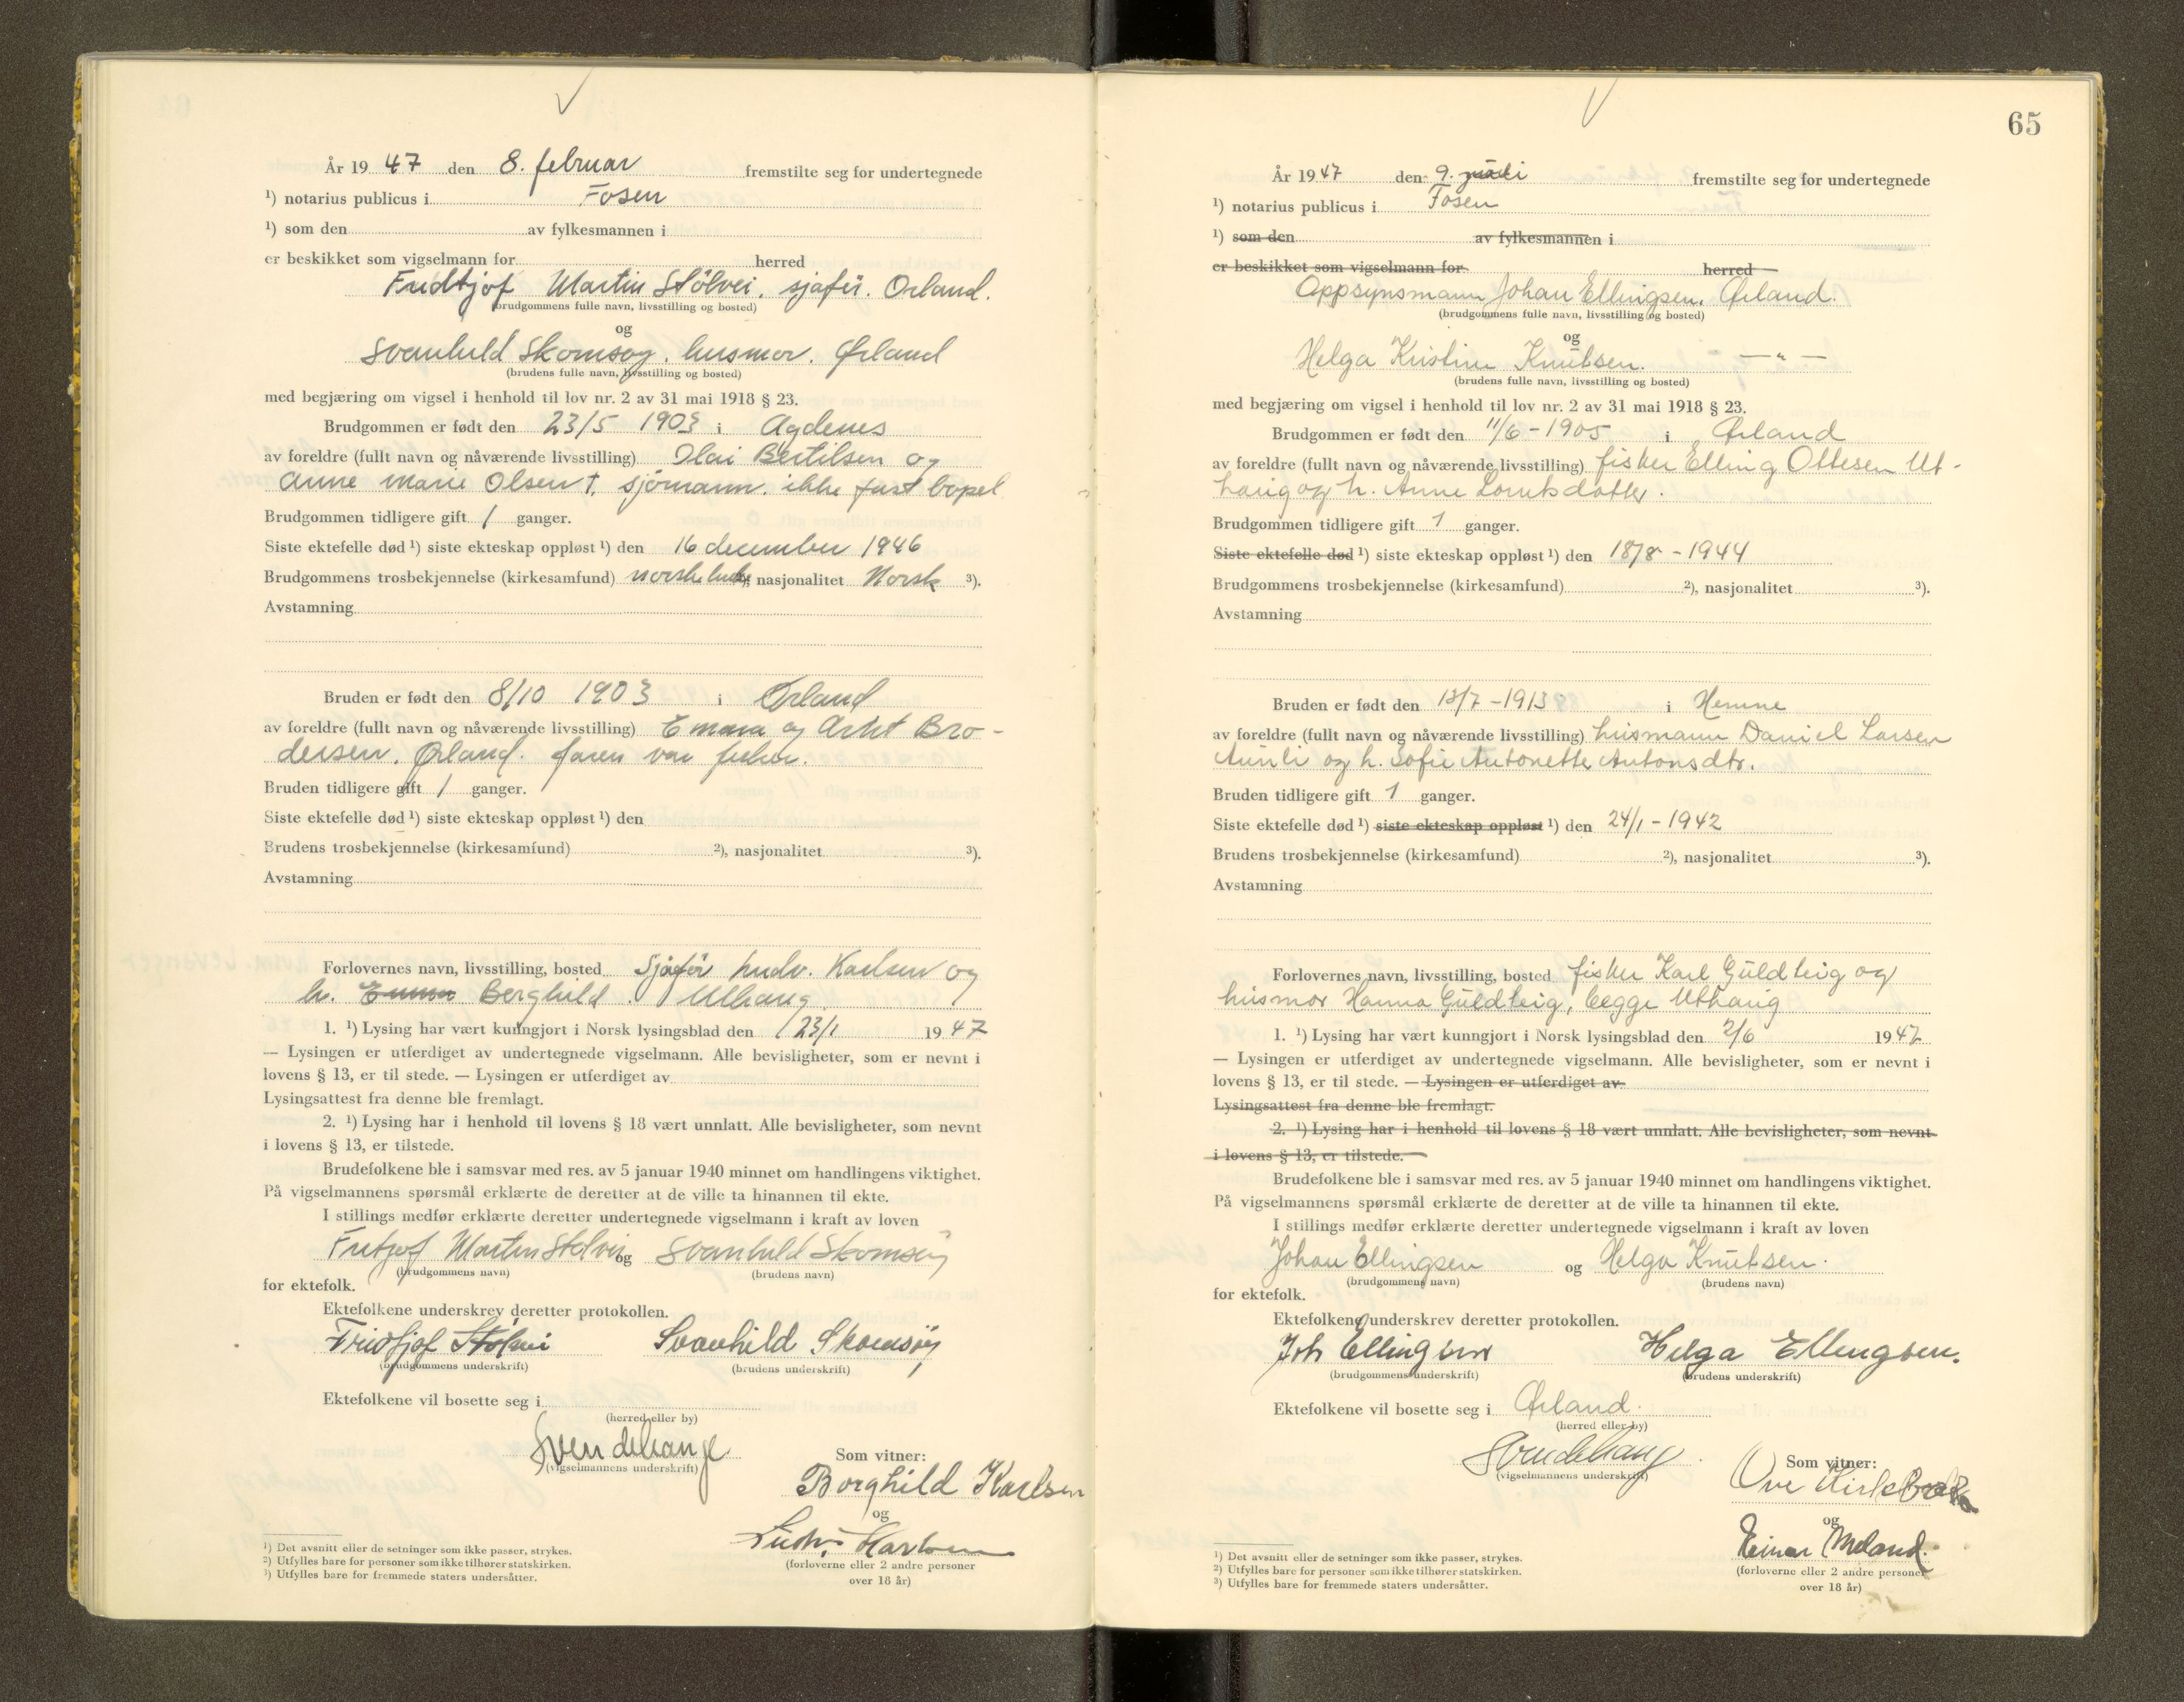 År 19 47 den 8. februar fremstilte seg for undertegnede
¹) notarius publicus i Fosen
¹) som den av fylkesmannen i
er beskikket som vigselmann for herred
Fridtjof Martin Stølvei, sjafør. Ørland.
(brudgommens fulle navn, livsstilling og bosted)
og
Svanhild Skomsøy. husmor. Ørland
(brudens fulle navn, livsstilling og bosted)
med begjæring om vigsel i henhold til lov nr. 2 av 31 mai 1918 § 23.
Brudgommen er født den 23/5 1903 i Agdenes
av foreldre (fullt navn og nåværende livsstilling) Olai Bertilsen og
Anne Marie Olsen †. sjømann. ikke fast bopel
Brudgommen tidligere gift 1 ganger.
Siste ektefelle død ¹) siste ekteskap oppløst ¹) den 16 december 1946
Brudgommens trosbekjennelse (kirkesamfund) norske nasjonalitet Norsk ³).
Avstamning
Bruden er født den 8/10 1903 i Ørland
av foreldre (fullt navn og nåværende livsstilling) Emma og Arht Bro-
dersen. Ørland. faren var fisker.
Bruden tidligere gift 1 ganger.
Siste ektefelle død ¹) siste ekteskap oppløst ¹) den
Brudens trosbekjennelse (kirkesamfund) ²), nasjonalitet ³).
Avstamning
Forlovernes navn, livsstilling, bosted Sjafør Ludv. Karlsen og
h. Emma Borghild. Uthaug
1. ¹) Lysing har vært kunngjort i Norsk lysingsblad den 23/1 19 47
— Lysingen er utferdiget av undertegnede vigselmann. Alle bevisligheter, som er nevnt i
lovens § 13, er til stede. — Lysingen er utferdiget av
Lysingsattest fra denne ble fremlagt.
2. ¹) Lysing har i henhold til lovens § 18 vært unnlatt. Alle bevisligheter, som nevnt
i lovens § 13, er tilstede.
Brudefolkene ble i samsvar med res. av 5 januar 1940 minnet om handlingens viktighet.
På vigselmannens spørsmål erklærte de deretter at de ville ta hinannen til ekte.
I stillings medfør erklærte deretter undertegnede vigselmann i kraft av loven
Fritjof Martin Stølvei og Svanhild Skomsøy
(brudgommens navn) (brudens navn)
for ektefolk.
Ektefolkene underskrev deretter protokollen.
Fridtjof Stølvei Svanhild Skomsøy
(brudgommens underskrift) (brudens underskrift)
Ektefolkene vil bosette seg i
(herred eller by)
Sven dehange
(vigselmannens underskrift)
Som vitner:
Borghild Karlsen
og
Ludv. Karlsen
(forloverne eller 2 andre personer
over 18 år)
¹) Det avsnitt eller de setninger som ikke passer, strykes.
²) Utfylles bare for personer som ikke tilhører statskirken.
³) Utfylles bare for fremmede staters undersåtter.
65
År 19 47 den 9. juli fremstilte seg for undertegnede
¹) notarius publicus i Fosen
¹) som den av fylkesmannen i
er beskikket som vigselmann for herred
Oppsynsmann Johan Ellingsen. Ørland.
(brudgommens fulle navn, livsstilling og bosted)
og
Helga Kristine Knutsen. — " —
(brudens fulle navn, livsstilling og bosted)
med begjæring om vigsel i henhold til lov nr. 2 av 31 mai 1918 § 23.
Brudgommen er født den 11/6 - 1905 i Ørland
av foreldre (fullt navn og nåværende livsstilling) fisker Elling Ottesen Ut-
haug og h. Anne Lorntsdatter.
Brudgommen tidligere gift 1 ganger.
Siste ektefelle død ¹) siste ekteskap oppløst ¹) den 18/8 - 1944
Brudgommens trosbekjennelse (kirkesamfund) ²), nasjonalitet ³).
Avstamning
Bruden er født den 13/7 - 1913 i Hemne
av foreldre (fullt navn og nåværende livsstilling) husmann Daniel Larsen
Aunli og h. Sofie Antonette Antonsdtr.
Bruden tidligere gift 1 ganger.
Siste ektefelle død ¹) siste ekteskap oppløst ¹) den 24/1 - 1942
Brudens trosbekjennelse (kirkesamfund) ²), nasjonalitet ³).
Avstamning
Forlovernes navn, livsstilling, bosted fisker Karl Guldteig og
husmor Hanna Guldteig, begge Uthaug
1. ¹) Lysing har vært kunngjort i Norsk lysingsblad den 2/6 19 47
— Lysingen er utferdiget av undertegnede vigselmann. Alle bevisligheter, som er nevnt i
lovens § 13, er til stede. — Lysingen er utferdiget av
Lysingsattest fra denne ble fremlagt.
2. ¹) Lysing har i henhold til lovens § 18 vært unnlatt. Alle bevisligheter, som nevnt
i lovens § 13, er tilstede.
Brudefolkene ble i samsvar med res. av 5 januar 1940 minnet om handlingens viktighet.
På vigselmannens spørsmål erklærte de deretter at de ville ta hinannen til ekte.
I stillings medfør erklærte deretter undertegnede vigselmann i kraft av loven
Johan Ellingsen og Helga Knutsen.
(brudgommens navn) (brudens navn)
for ektefolk.
Ektefolkene underskrev deretter protokollen.
Joh Ellingsen Helga Ellingsen.
(brudgommens underskrift) (brudens underskrift)
Ektefolkene vil bosette seg i Ørland.
(herred eller by)
(vigselmannens underskrift)
Som vitner:
Ove
og
Einar Meland.
(forloverne eller 2 andre personer
over 18 år)
¹) Det avsnitt eller de setninger som ikke passer, strykes.
²) Utfylles bare for personer som ikke tilhører statskirken.
³) Utfylles bare for fremmede staters undersåtter.